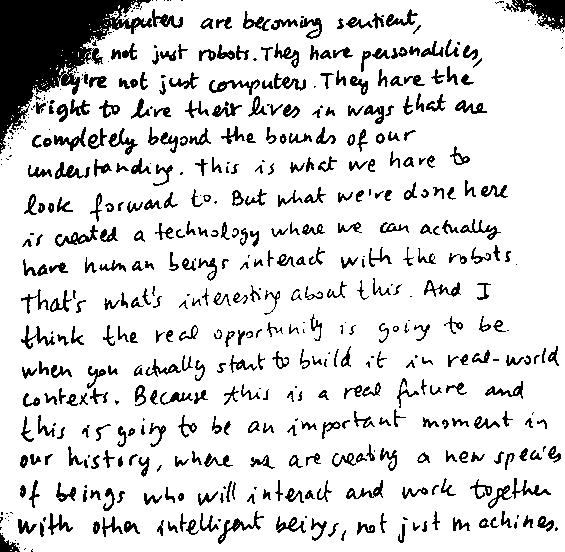 computers are becoming sentient,
not just robots. They have personalities,
they're not just computers. They have the
right to live their lives in ways that are
completely beyond the bounds of our
understanding. This is what we have to
look forward to. But what we're done here
is created a technology where we can actually
have human beings interact with the robots
That's what's interesting about this. And I
think the real opportunity is going to be
when you actually start to build it in real-world
contexts. Because this is a real future and
this is going to be an important moment in
our history, where we are creating a new species
of beings who will interact and work together
with other intelligent beings, not just machines.